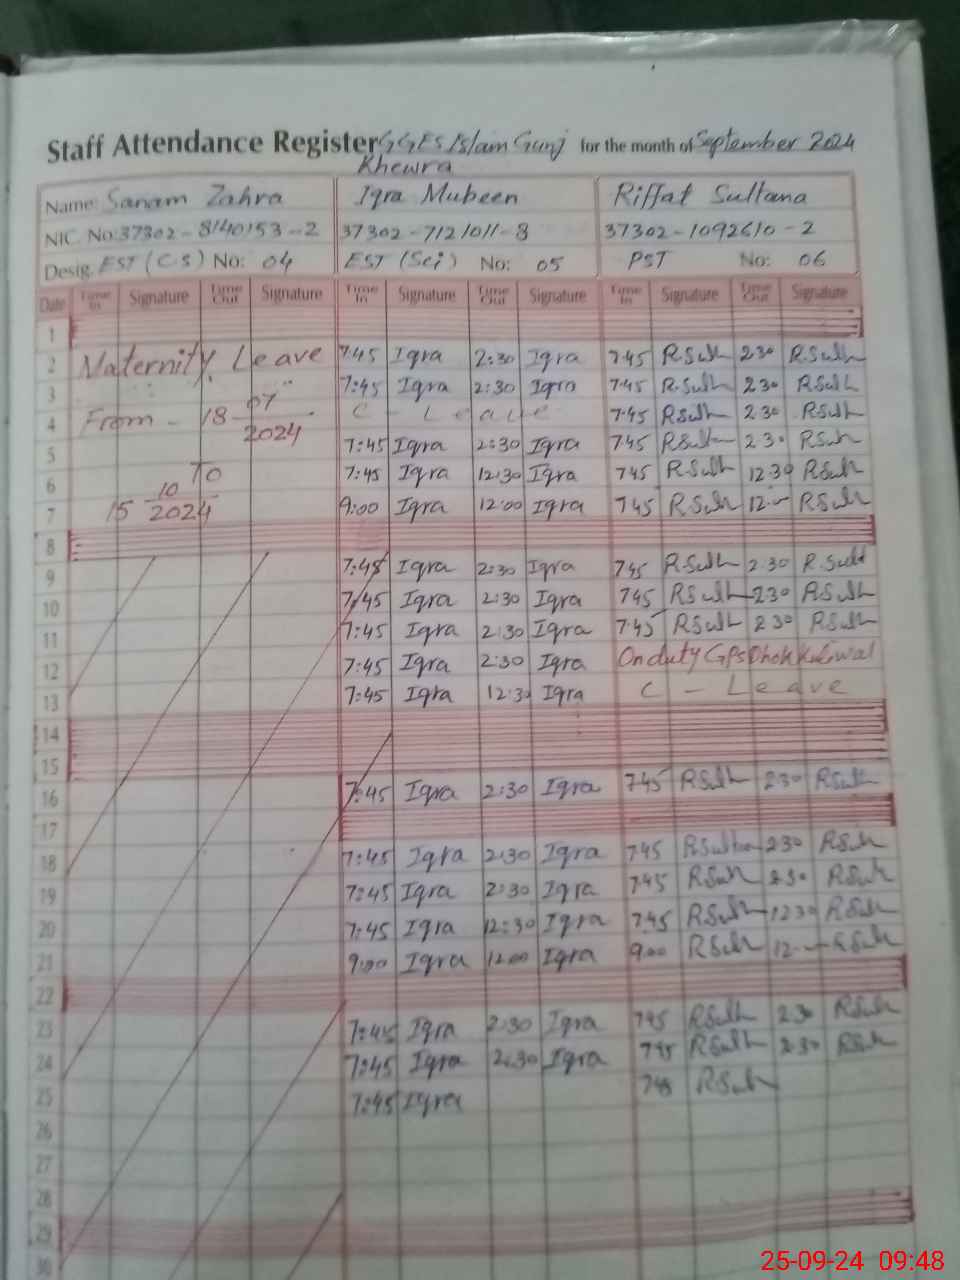 Staff Attendance Register GGES Islam Gunj for the month of September 2024
Khewra
Name: Sanam Zahra Iqra Mubeen Riffat Sultana
NIC. No: 37302-8140153-2 37302-7121011-8 37302-1092610-2
Desig. EST (C.S) No: 04 EST (Sci) No: 05 PST No: 06
Date Time In Signature Time Out Signature Time In Signature Time Out Signature Time In Signature Time Out Signature
1
2 Maternity Leave 7:45 Iqra 2:30 Iqra 7:45 R.Sulth 2:30 R.Sulth
3 7:45 Iqra 2:30 Iqra 7:45 R.Sulth 2:30 R.Sulh
4 From - 18-07-2024 C - Leave 7:45 RSulth 2:30 RSulh
5 7:45 Iqra 2:30 Iqra 7:45 RSulth 2:30 RSuh
6 To 7:45 Iqra 12:30 Iqra 7:45 R.Sulh 12:30 RSulh
7 15-10-2024 9:00 Iqra 12:00 Iqra 7:45 RSulh 12:- RSulh
8
9 7:45 Iqra 2:30 Iqra 7:45 RSulth 2:30 R.Sulh
10 7:45 Iqra 2:30 Iqra 745 RSulth 2:30 RSulh
11 7:45 Iqra 2:30 Iqra 7:45 RSulh 2:30 RSulh
12 7:45 Iqra 2:30 Iqra On duty GPS Dhok
13 7:45 Iqra 12:30 Iqra C - Leave
14
15
16 7:45 Iqra 2:30 Iqra 7:45 RSulh 2:30 RSulh
17
18 7:45 Iqra 2:30 Iqra 7:45 RSultan 2:30 RSuh
19 7:45 Iqra 2:30 Iqra 7:45 RSulh 2:30 RSuh
20 7:45 Iqra 12:30 Iqra 7:45 RSulh 12:30 RSulh
21 9:00 Iqra 12:00 Iqra 9:00 RSulh 12:- RSuh
22
23 7:45 Iqra 2:30 Iqra 7:45 RSulth 2:30 RSulh
24 7:45 Iqra 2:30 Iqra 7:45 RSulh 2:30 RSuh
25 7:45 Iqra 7:45 R.Suh
26
27
28
29
30
25-09-24 09:48